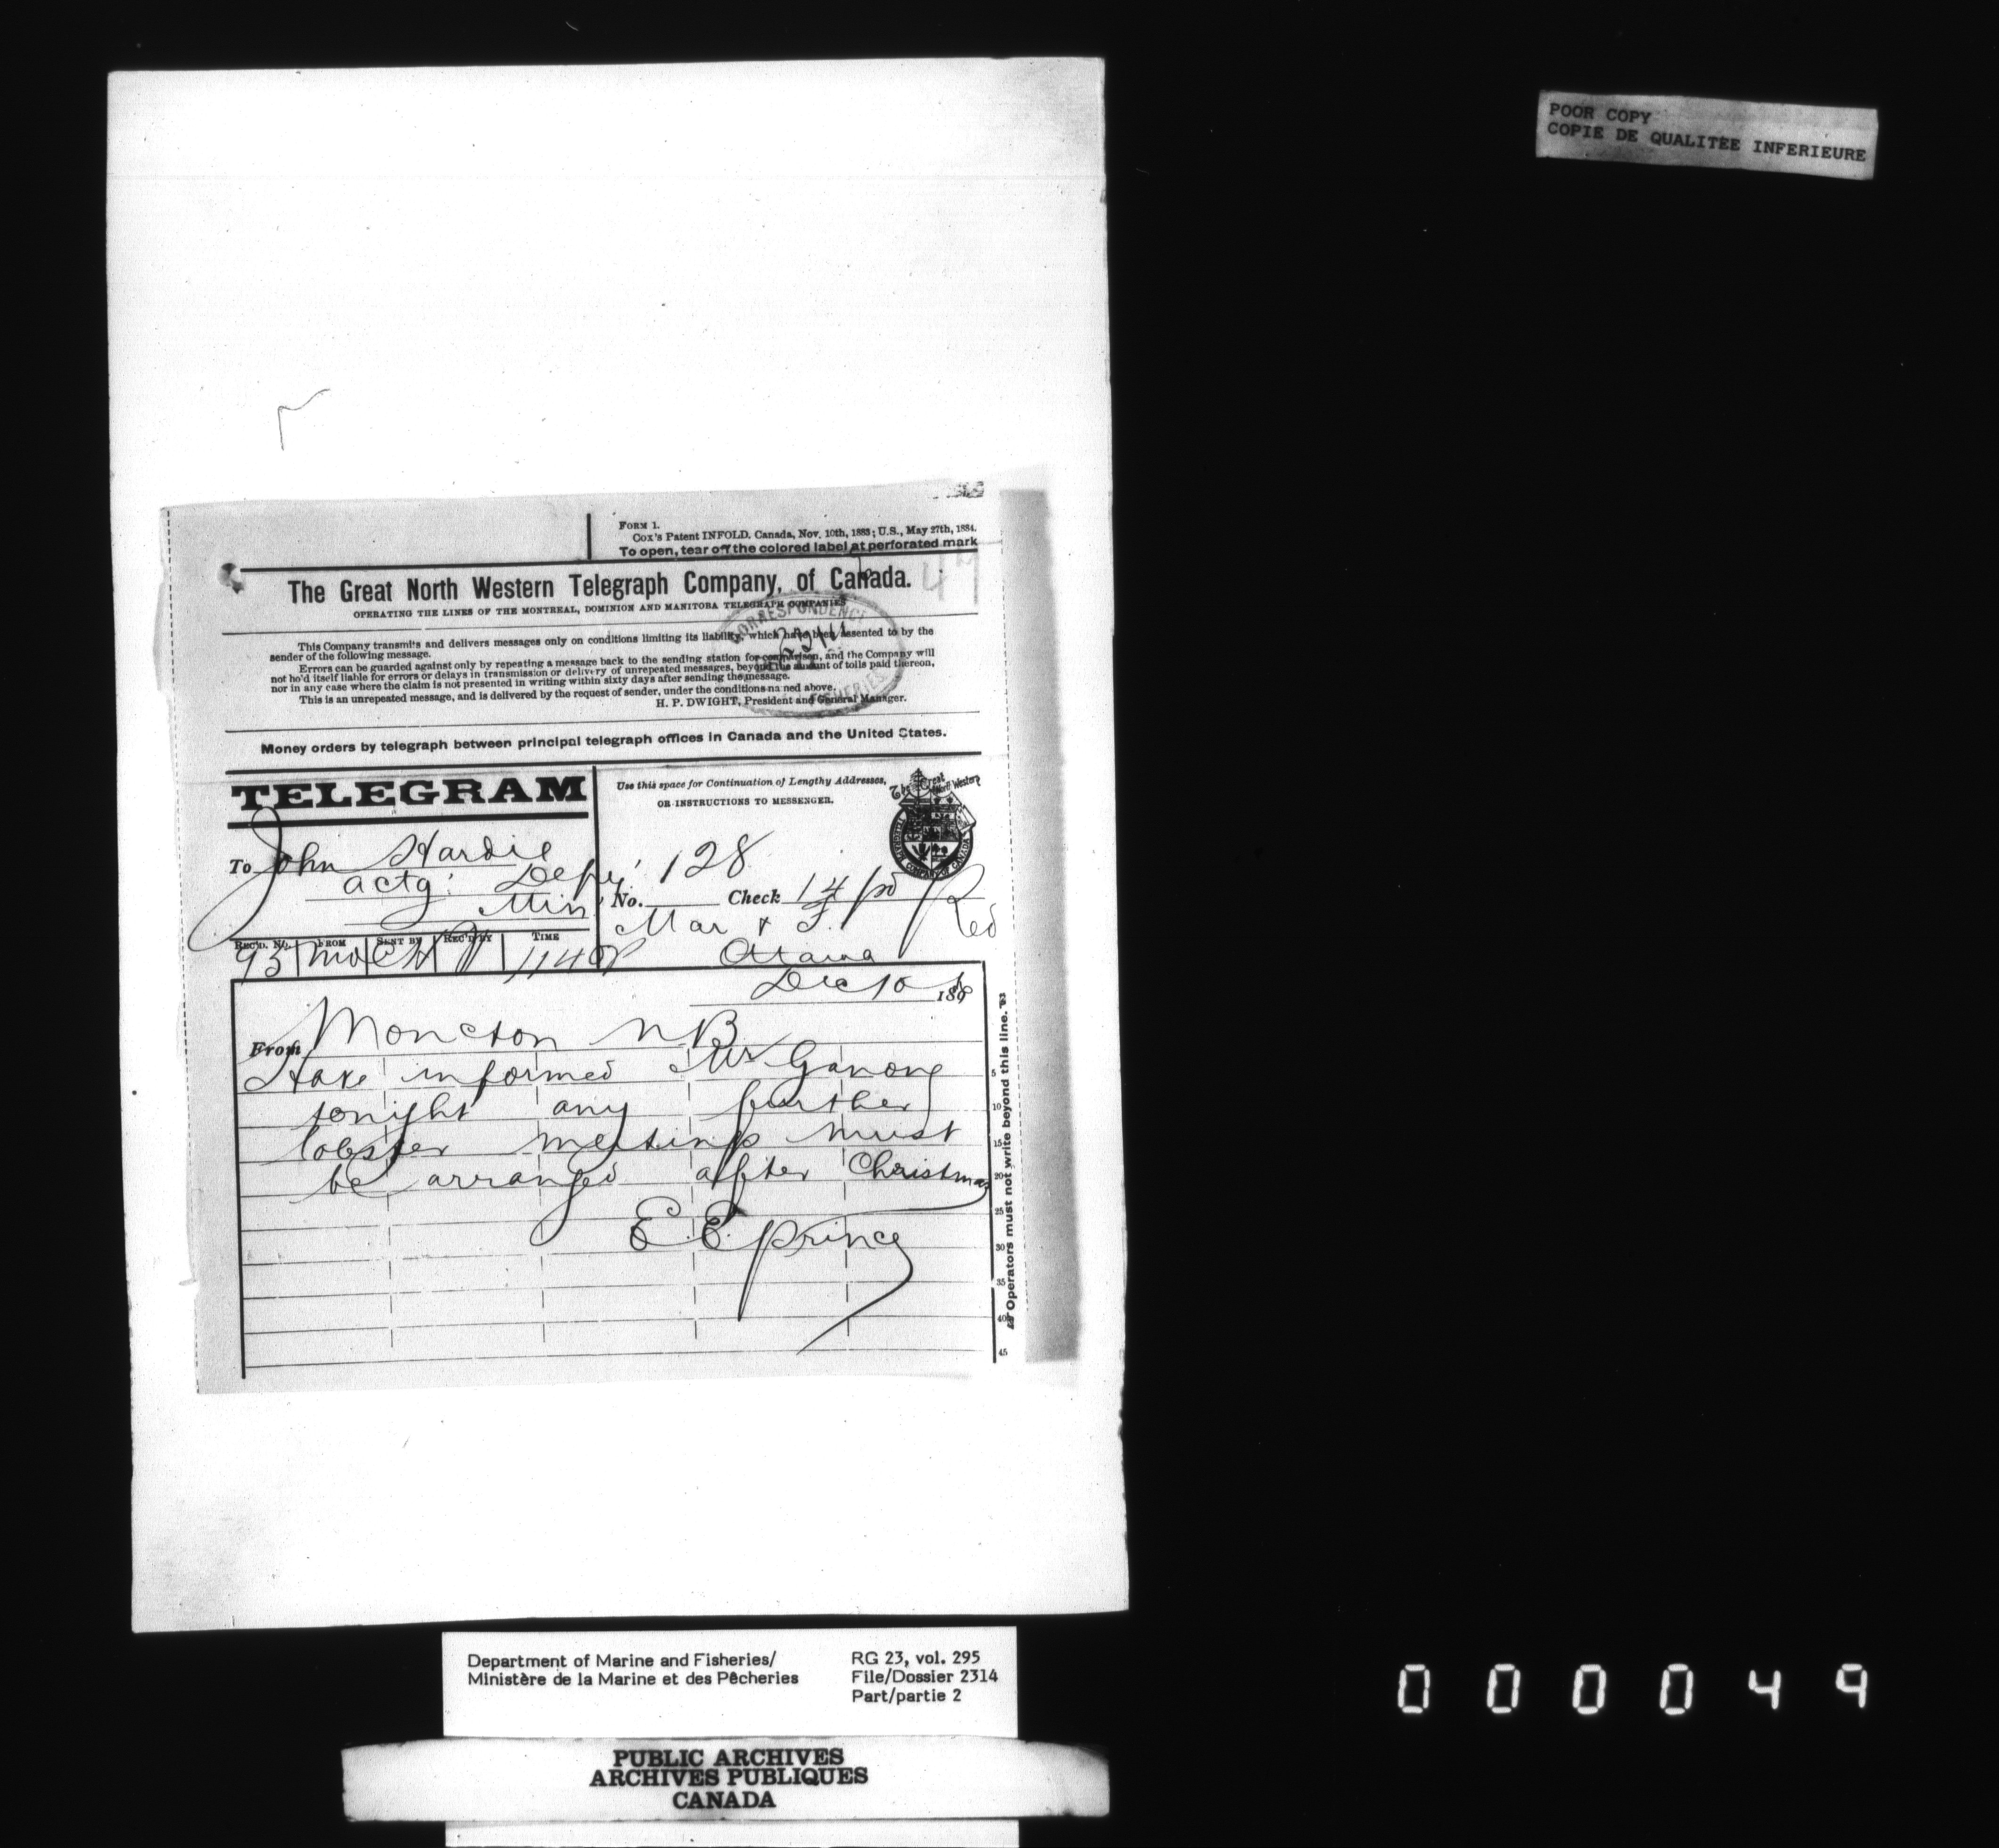 POOR COPY
COPIE DE QUALITÉE INFERIEURE
FORM 1.
Cox's Patent INFOLD. Canada, Nov. 10th, 1883; U.S., May 27th, 1884.
To open, tear off the colored label at perforated mark
The Great North Western Telegraph Company, of Canada.
OPERATING THE LINES OF THE MONTREAL, DOMINION AND MANITOBA TELEGRAPH COMPANIES
CORRESPONDENCE
2314
FISHERIES
This Company transmits and delivers messages only on conditions limiting its liability, which have been assented to by the
sender of the following message.
Errors can be guarded against only by repeating a message back to the sending station for comparison, and the Company will
not ho'd itself liable for errors or delays in transmission or delivery of unrepeated messages, beyond the amount of tolls paid thereon,
nor in any case where the claim is not presented in writing within sixty days after sending the message.
This is an unrepeated message, and is delivered by the request of sender, under the conditions na ned above.
H. P. DWIGHT, President and General Manager.
Money orders by telegraph between principal telegraph offices in Canada and the United States.
TELEGRAM
Use this space for Continuation of Lengthy Addresses,
OR INSTRUCTIONS TO MESSENGER.
The Great North Western
TELEGRAPH COMPANY OF CANADA
To John Hardie
actg: Depy
Min
128
No. Check 14 pd
Mar & F.
Ottawa
REC'D. No. FROM SENT BY REC'D BY TIME
95 Mo
Dec 10 189
From Moncton NB
Have informed Mr Ganong
tonight any further
lobster meetings must
be arranged after Christmas
E E Prince
5
10
15
20
25
30
35
40
45
Operators must not write beyond this line.
Department of Marine and Fisheries/
Ministère de la Marine et des Pêcheries
RG 23, vol. 295
File/Dossier 2314
Part/partie 2
PUBLIC ARCHIVES
ARCHIVES PUBLIQUES
CANADA
000049